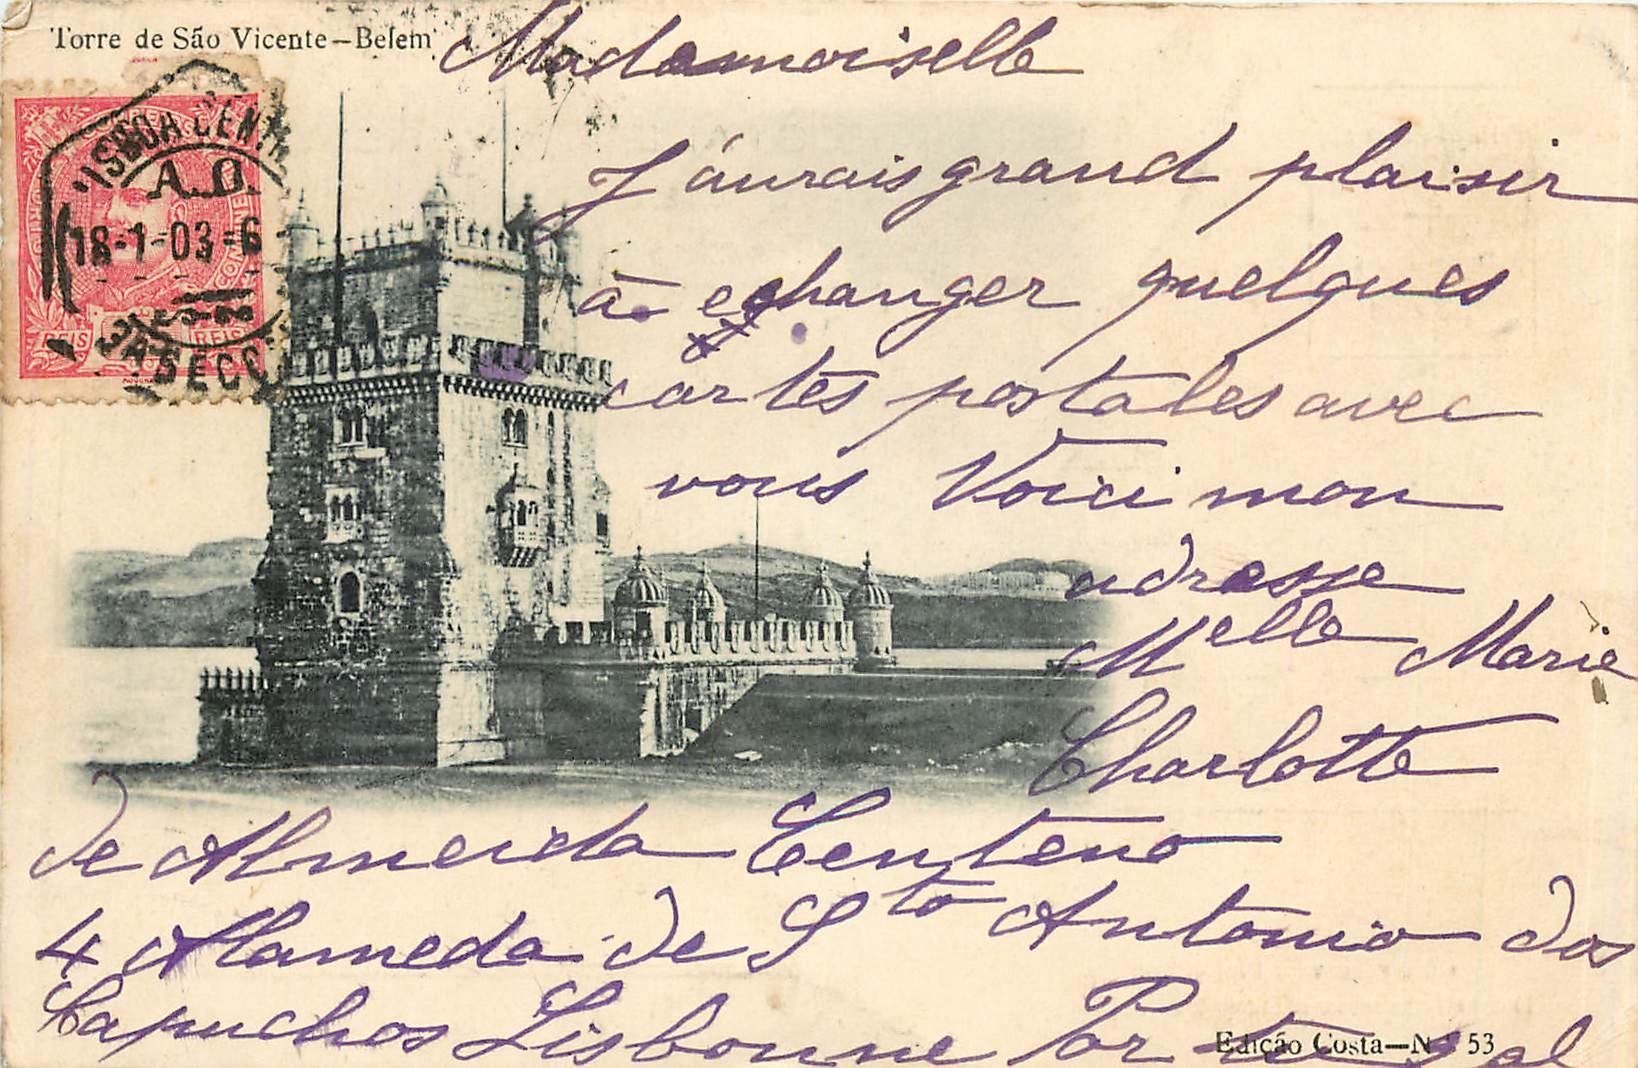 Torre de São Vicente—Belem
Mademoiselle
LISBOA CENTRAL
A. O.
18-1-03-6
3ª SECÇ
REIS REIS
J'áurais grand plaisir
à echanger quelques
cartes postales avec
vous Voici mon
adresse
Melle Marie
Charlotte
de Almeida Centeno
4 Alameda de Sto Antonio dos
Capuchos Lisbonne Portugal
Edição Costa—N.º 53